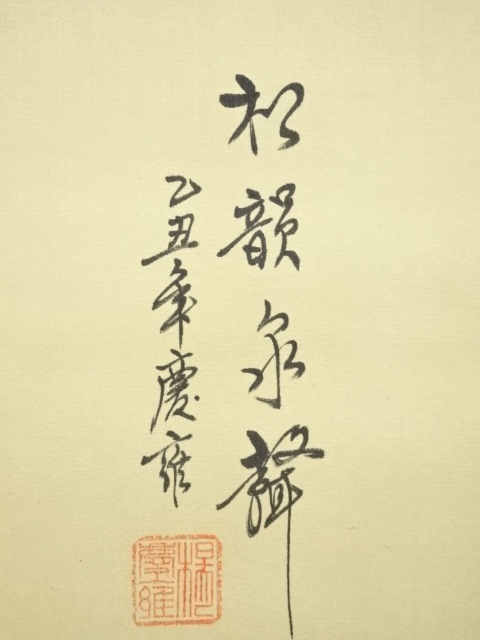 松韻泉聲
乙丑年慶雍